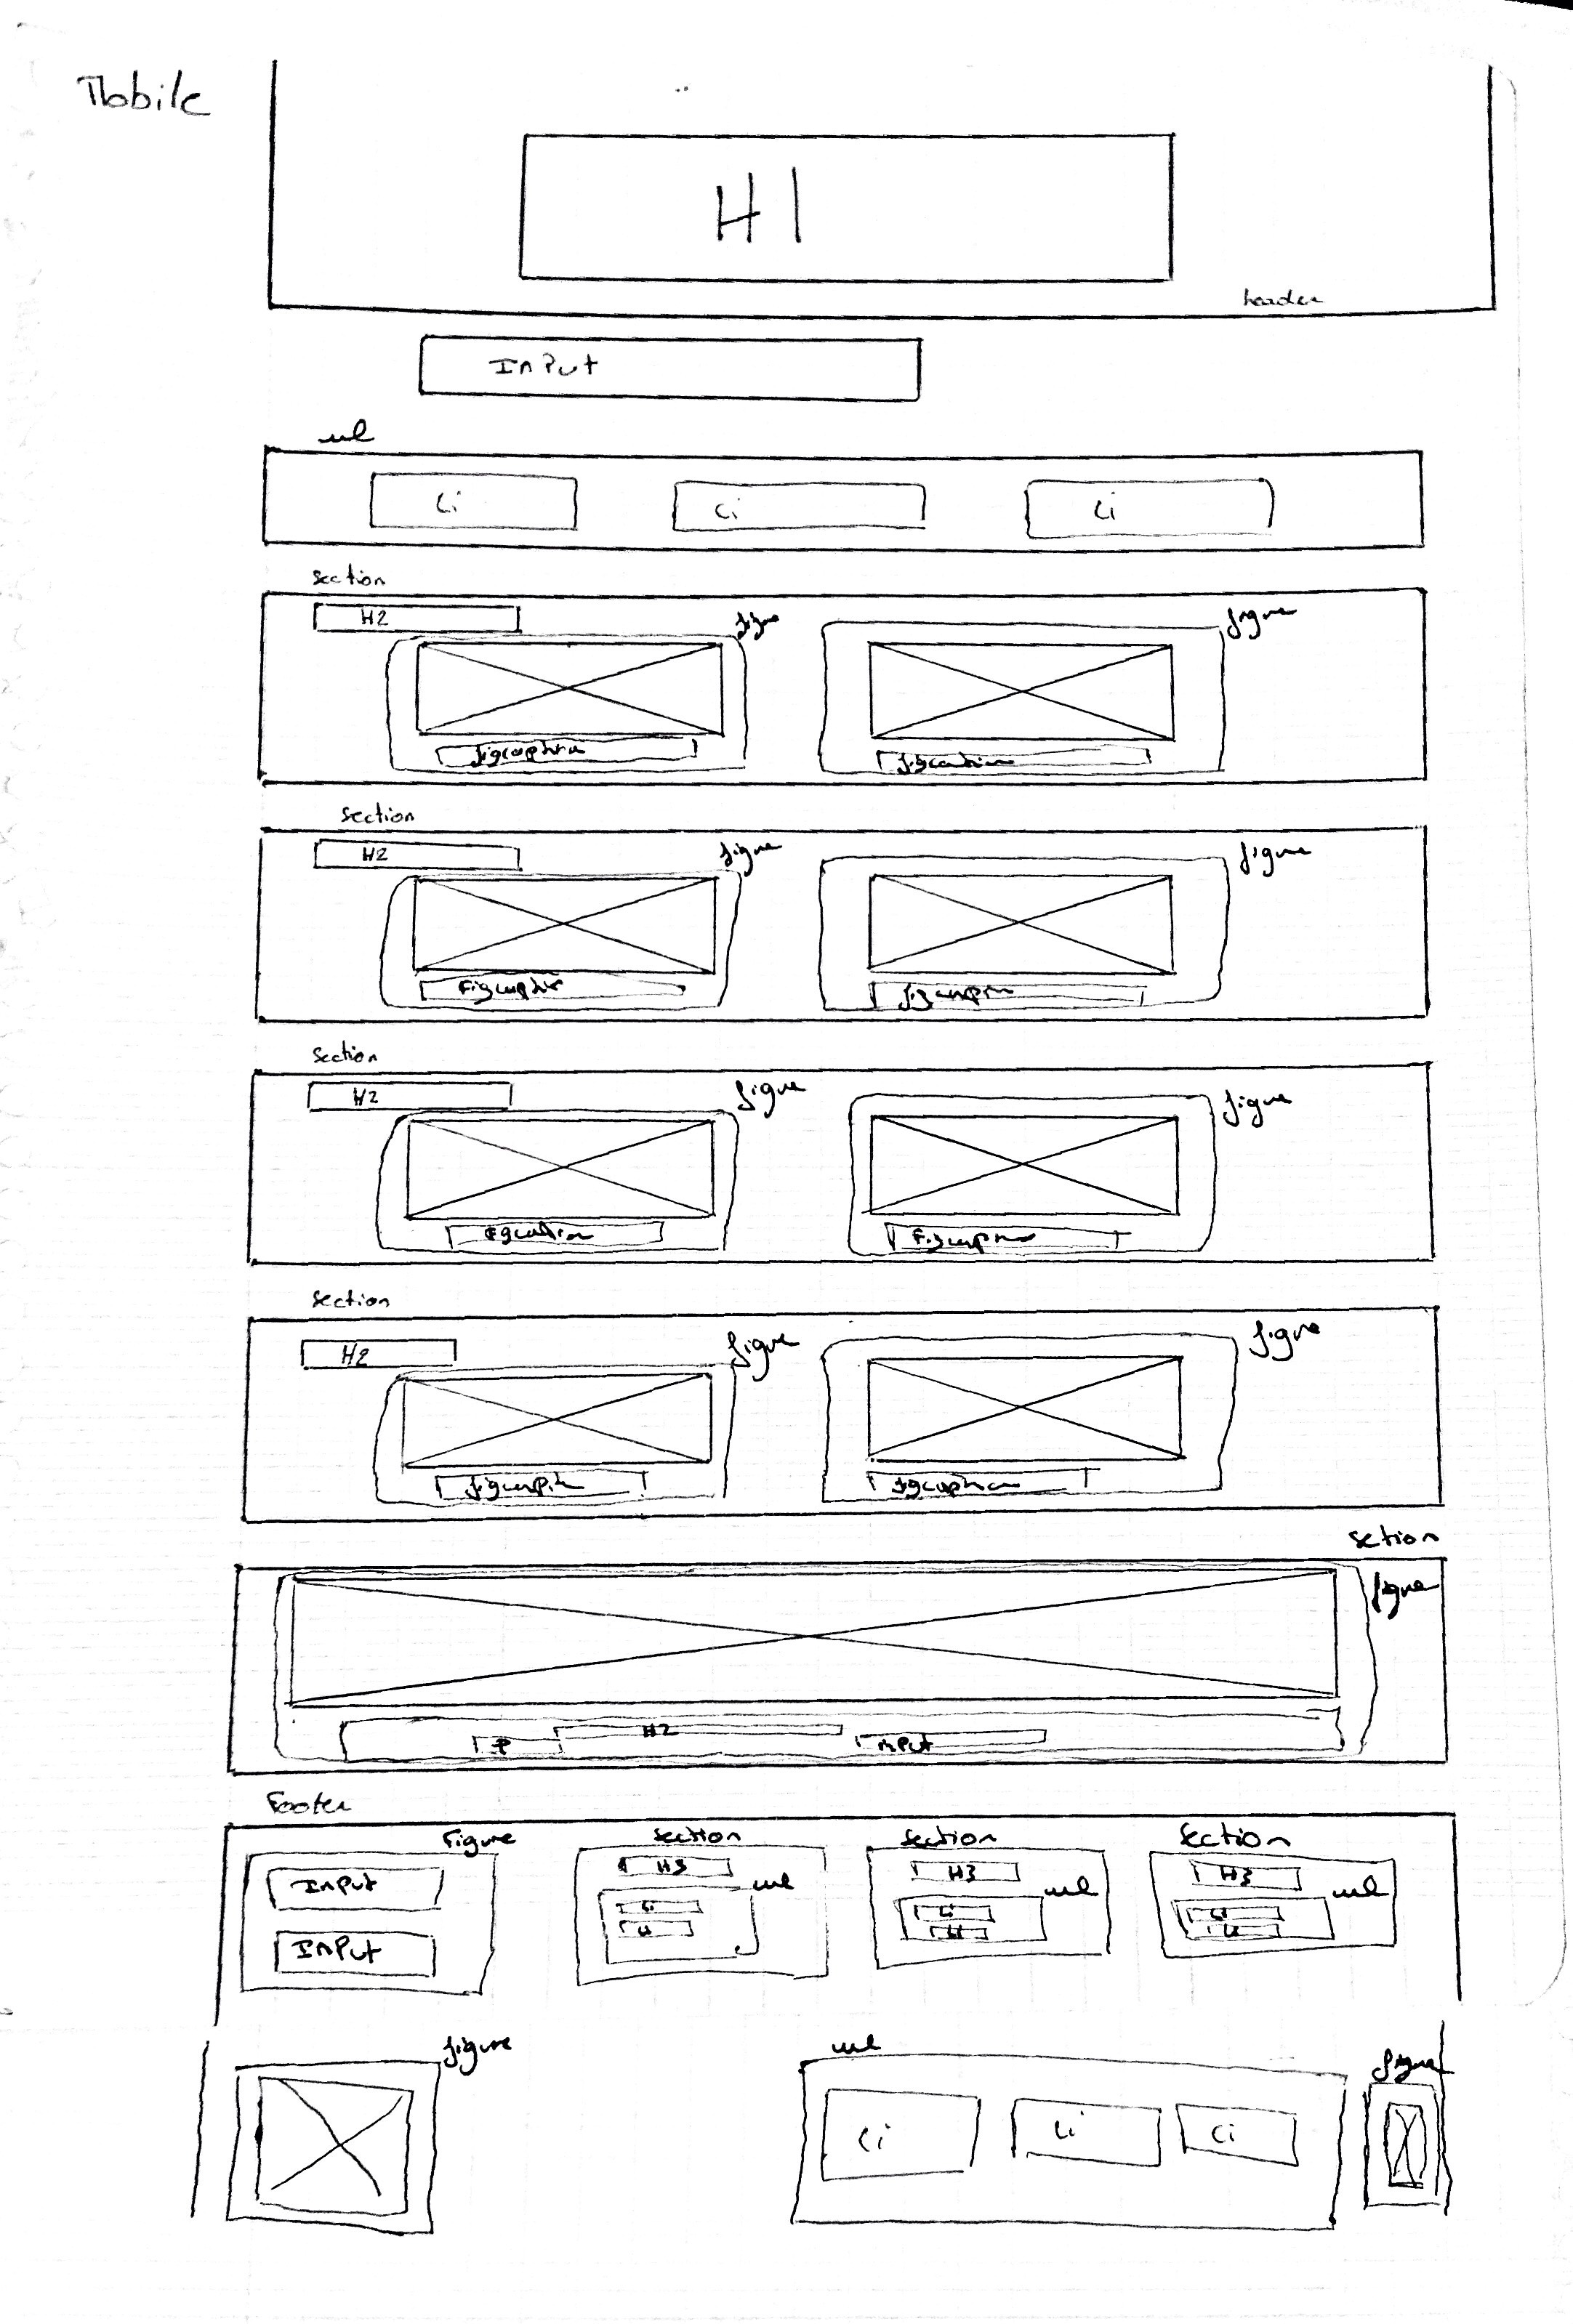 Mobile
H1
header
InPut
ul
Li Li Li
section
H2 figure figure
figcaption figcaption
section
H2 figure figure
Figcaption figcaption
section
H2 figure figure
figcaption Figcaption
section
H2 figure figure
figcaption figcaption
section
figure
P H2 InPut
Footer
Figure section section section
InPut H3 ul H3 ul H3 ul
Li Li Li
InPut Li Li Li
figure ul figure
Li Li Li